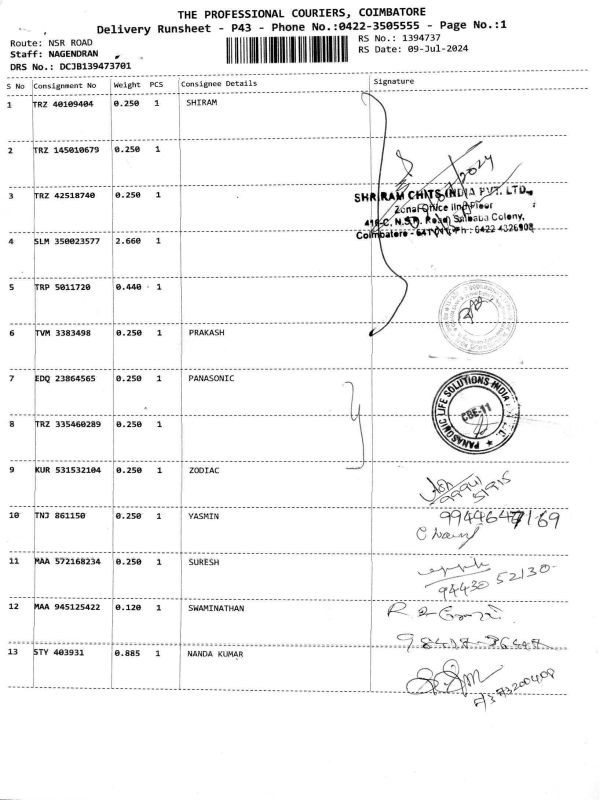 THE PROFESSIONAL COURIERS, COIMBATORE
Delivery Runsheet - P43 - Phone No.:0422-3505555 - Page No.:1
Route: NSR ROAD
RS No.: 1394737
Staff: NAGENDRAN
RS Date: 09-Jul-2024
DRS No.: DCJB139473701
S No Consignment No Weight PCS Consignee Details Signature
1 TRZ 40109404 0.250 1 SHIRAM
2 TRZ 145010679 0.250 1
3 TRZ 42518740 0.250 1
SHRIRAM CHITS INDIA PVT. LTD.,
Zonal Office IInd Floor
416-C, N.S.R. Road, Saibaba Colony,
4 SLM 350023577 2.660 1
Coimbatore - Ph : 0422 4326908
5 TRP 5011720 0.440 1
6 TVM 3383498 0.250 1 PRAKASH
7 EDQ 23864565 0.250 1 PANASONIC
PANASONIC LIFE SOLUTIONS INDIA
CBE-11
8 TRZ 335460289 0.250 1
9 KUR 531532104 0.250 1 ZODIAC
10 TNJ 861150 0.250 1 YASMIN
9944647169
11 MAA 572168234 0.250 1 SURESH
94430 52130
12 MAA 945125422 0.120 1 SWAMINATHAN
13 STY 403931 0.885 1 NANDA KUMAR